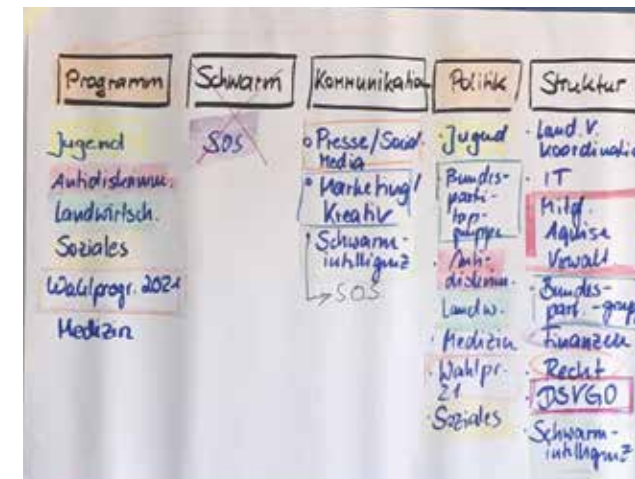 Programm
Jugend
Antidiskrimin.
Landwirtsch.
Soziales
Wahlprogr. 2021
Medizin
Schwarm
SOS
Kommunikation
Presse/Social-
Media
Marketing/
Kreativ
Schwarm-
intelligenz
↳ SOS
Politik
· Jugend
· Bundes-
parti-
top-
gruppe
· Anti-
diskrimin.
Landw.
· Medizin
· Wahlpr.
21
· Soziales
Struktur
· Land. V.
koordinatio
· IT
Mitgl.
Aquise
Verwalt
· Bundes-
part.-grup
· Finanzen
· Recht
· DSVGO
· Schwarm-
intelligenz